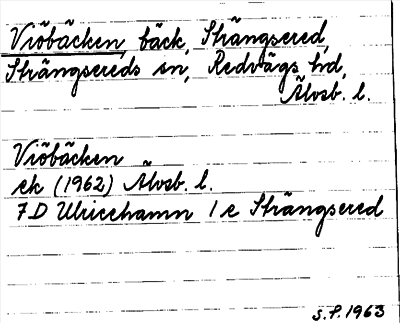 Viöbäcken, bäck, Strängsered,
Strängsereds sn, Redvägs hd,
Älvsb. l.
Viöbäcken
ek (1962) Älvsb. l.
7D Ulricehamn 1e Strängsered
S.P. 1963